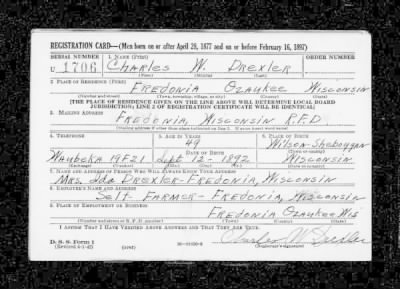 REGISTRATION CARD—(Men born on or after April 28, 1877 and on or before February 16, 1897)
SERIAL NUMBER 1. NAME (Print) ORDER NUMBER
U 1706 Charles W. Drexler
(First) (Middle) (Last)
2. PLACE OF RESIDENCE (Print)
Fredonia Ozaukee Wisconsin
(Number and street) (Town, township, village, or city) (County) (State)
[THE PLACE OF RESIDENCE GIVEN ON THE LINE ABOVE WILL DETERMINE LOCAL BOARD
JURISDICTION; LINE 2 OF REGISTRATION CERTIFICATE WILL BE IDENTICAL]
3. MAILING ADDRESS
Fredonia, Wisconsin R.F.D.
4. TELEPHONE 5. AGE IN YEARS 6. PLACE OF BIRTH
49 Wilson-Sheboygan
DATE OF BIRTH (Town or county)
Waubeka 19F21 Sept 12- 1892 Wisconsin
7. NAME AND ADDRESS OF PERSON WHO WILL ALWAYS KNOW YOUR ADDRESS
Mrs. Ida Drexler-Fredonia, Wisconsin
8. EMPLOYER'S NAME AND ADDRESS
Self. Farmer- Fredonia, Wisconsin
9. PLACE OF EMPLOYMENT OR BUSINESS
Fredonia Ozaukee Wis
(Number and street or R. F. D. number) (Town) (County) (State)
I AFFIRM THAT I HAVE VERIFIED ABOVE ANSWERS AND THAT THEY ARE TRUE.
D. S. S. Form 1 Charles W. Drexler
(Revised 4-1-42) (over) (Registrant's signature)